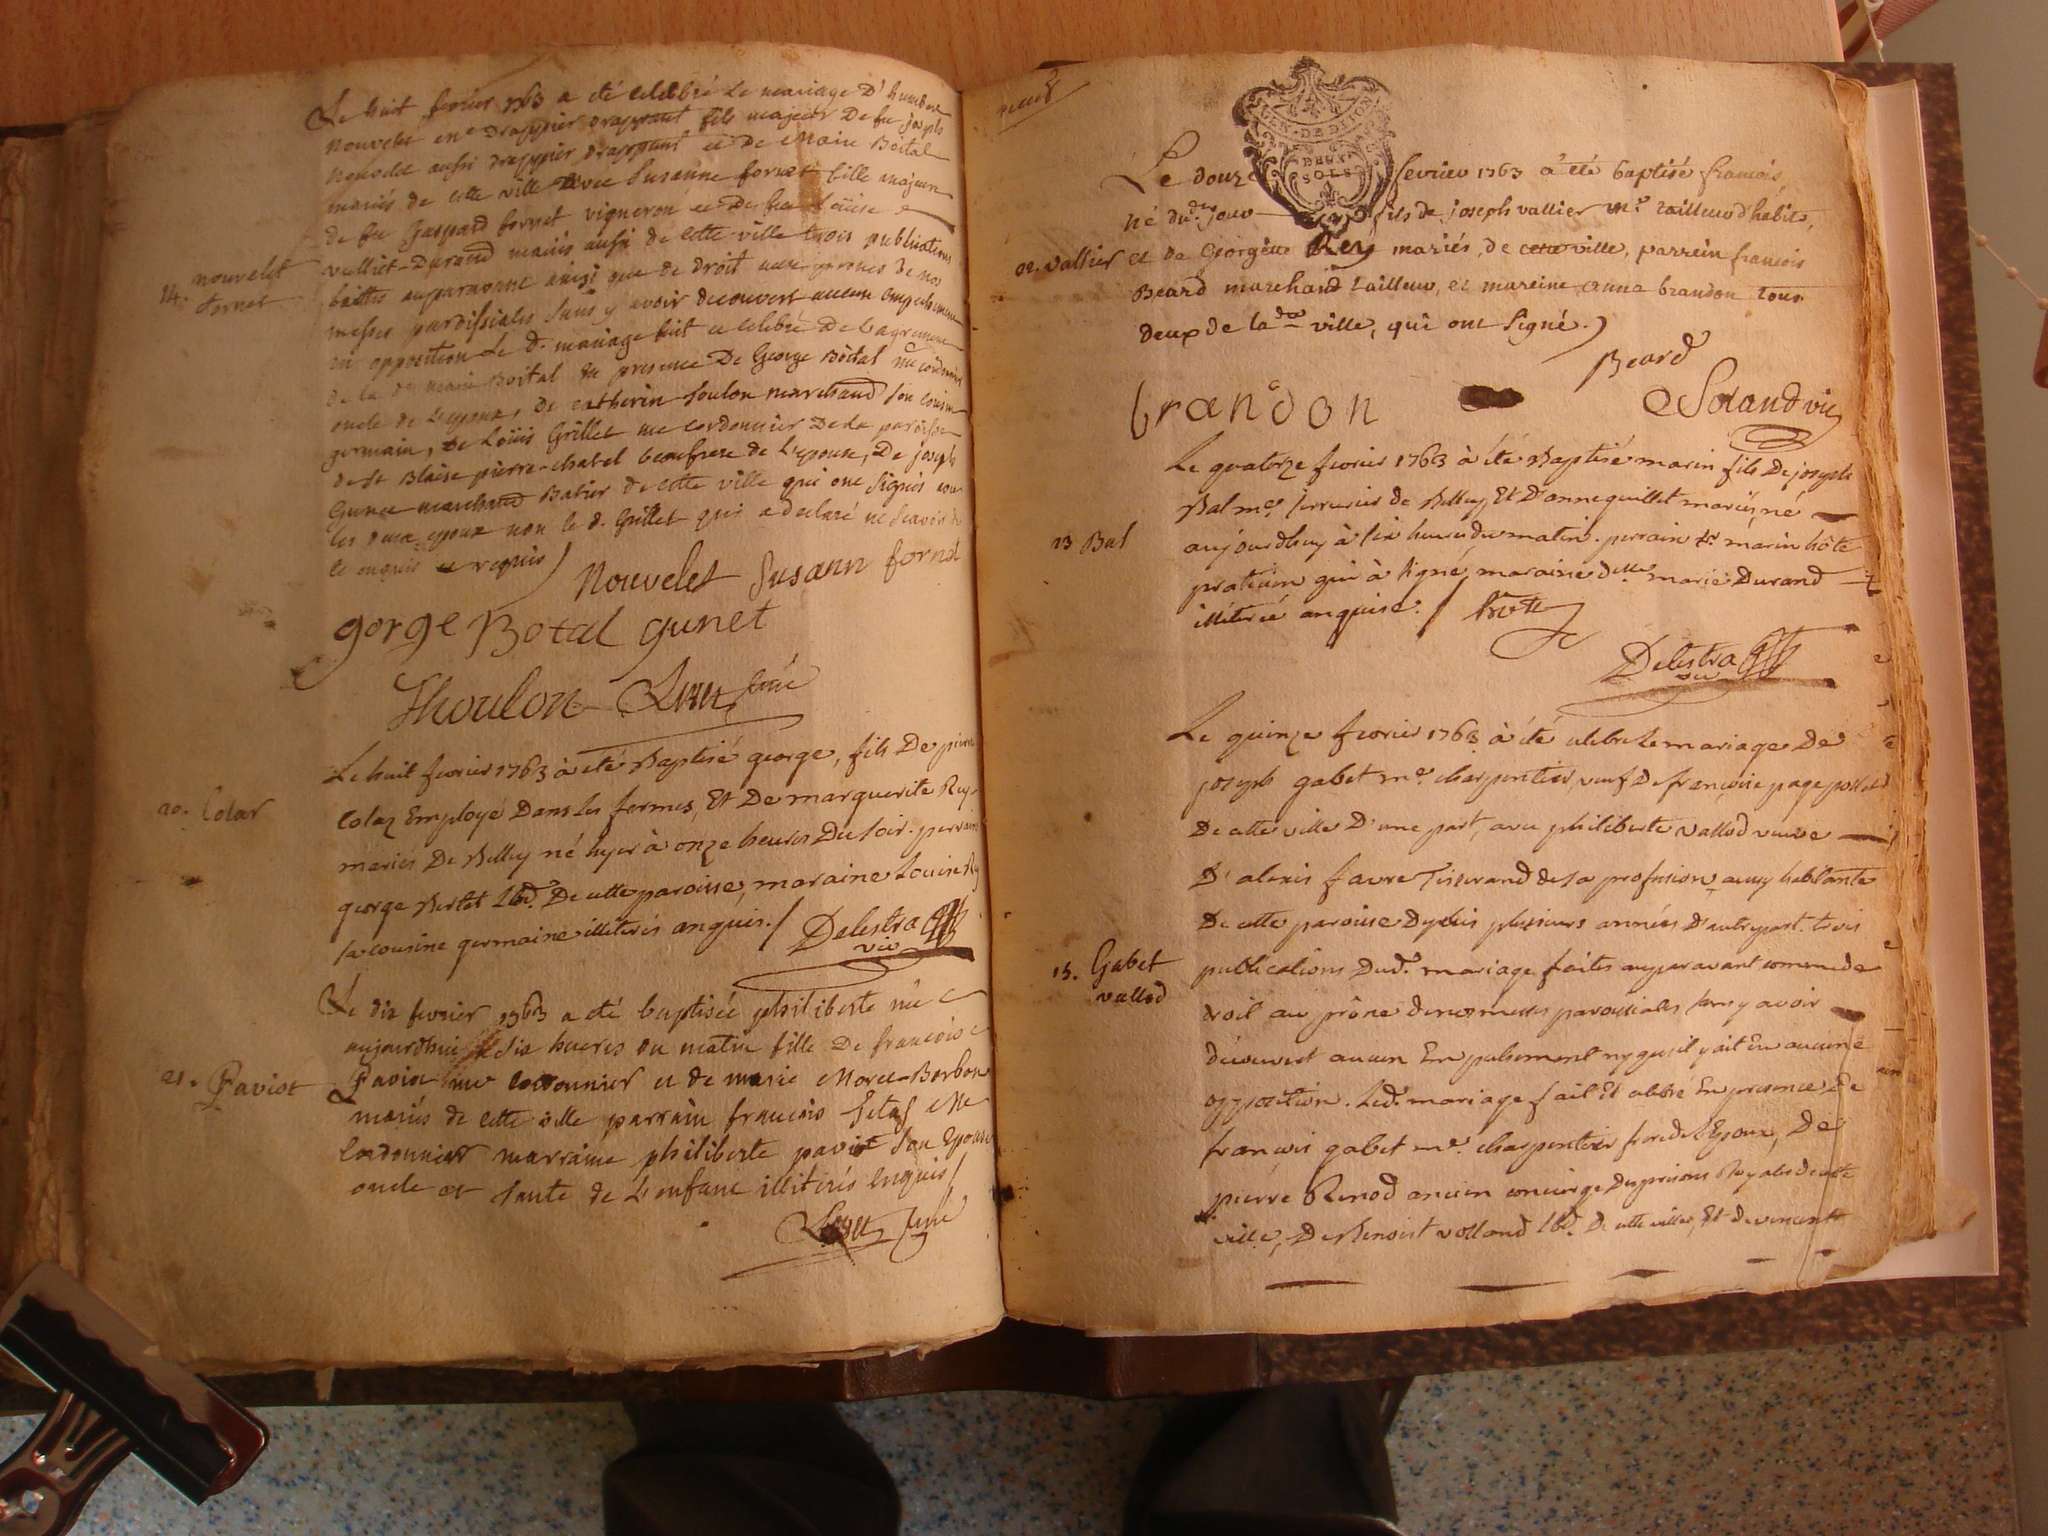 Le huit fevrier 1763 a eté celebré Le mariage D'humbert
nouvelet me drappier drappant fils majeur De feu joseph
nouvelet aussi drappier drappant et De Marie Boital
mariés de cette ville avec Susanne fornet fille majeure
de feu Gaspard fornet vigneron et De feu Loüise
vulliet-Durand mariés aussi de cette ville trois publications
faittes auparavant ainsi que de droit aux prones de nos
messes paroissiales sans y avoir decouvert aucun empechement
ni opposition Le d. mariage fait et celebré De l'agrement
de la de marie Boital en presence De George Boital me cordonnier
oncle de L'epoux, De catherin Toulon marchand son cousin
germain, De Loüis Grillet me cordonnier De la paroisse
de St Blaise pierre-chatel beaufrere de L'epouse, De joseph
Gunet marchand Batier de cette ville qui ont signés avec
les deux epoux non le d. Grillet qui a declaré ne scavoir
de ce enquis et requis /
14. nouvelet
fornet
Nouvelet Susann fornet
gorge Botal gunet
Thoulon
Le huit fevrier 1763 à eté Baptisé george, fils De pierre
Colaz Employé Dans Les fermes, Et De marguerite Rey
mariés De Belley né hyer à onze heures Du soir. perrain
george Bertet Lbr. De cette paroisse, maraine Louise Rey
sa cousine germaine illiterés enquis. / Delestra
vic
20. Colaz
Le dix fevrier 1763 a eté baptisée philiberte née
aujourdhui à six heures du matin fille De francois
Paviot me cordonnier et de marie Morel-Borbon
mariés de cette ville parrain francois fetaz Me
Cordonnier marraine philiberte paviot son Epouse
oncle et tante de L'enfant illiterés Enquis /
21. Paviot
neuf
GEN. DE DIJON
DEUX
SOLS
Le douze fevrier 1763 a été baptisé francois,
né du.d jour fils de joseph vallier me tailleur d'habits,
22. vallier et de Georgette Rey mariés, de cette ville, parrein francois
Beard marchand tailleur, et mareine anne brandon tous
deux de la dte ville, qui ont signé. )
Beard
brandon Soland vic
Le quatorze fevrier 1763 à été Baptisé marin fils De joseph
Bal me serrurier de Belley, Et D'anne guillet mariés, né
23 Bal aujourdhuy à six heures du matin. perrain Sr marin hôte
praticien qui à signé, maraine delle marie Durand
illiterée enquise. / hôte
Delestra
vic
Le quinze fevrier 1763 à été celebré Le mariage De
joseph gabet me. charpentier, veuf De françoise page pollet
De cette ville D'une part, avec philiberte Vallod veuve
D'alexis favre Tisserand de sa profession aussy habitante
De cette paroisse Depuis plusieurs années D'autre part. trois
15. Gabet
vallod
publications Dud. mariage faites auparavant comme de
droit au prône de nos messes paroissiales sans y avoir
découvert aucun Empechement ny qu'il y ait Eu aucune
opposition. Led. mariage fait Et celebré En presence De
françois gabet me. charpentier frere de L'Epoux, De
pierre Renod ancien concierge Des prisons Royales de cette
ville, De Benoist volland Lbr. De cette ville, Et de vincent